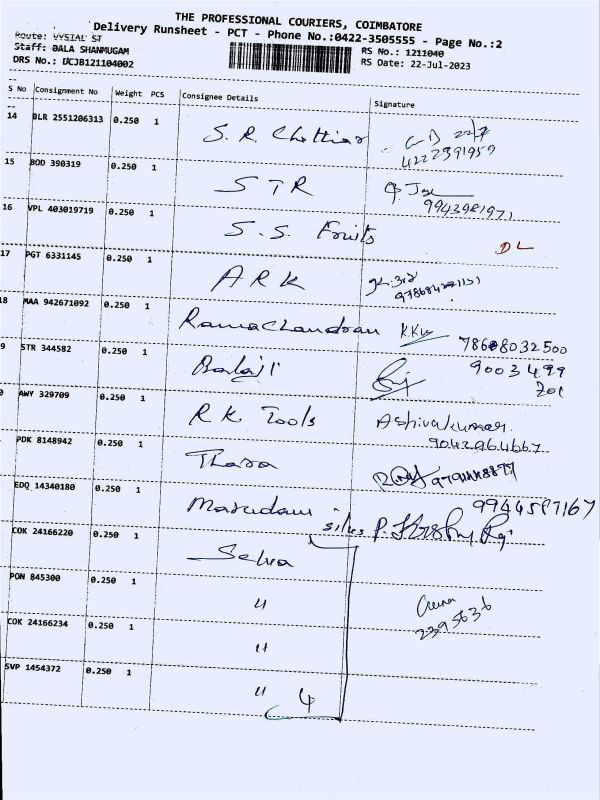 THE PROFESSIONAL COURIERS, COIMBATORE
Delivery Runsheet - PCT - Phone No.:0422-3505555 - Page No.:2
Route: VYSIAL ST
Staff: BALA SHANMUGAM
RS No.: 1211040
DRS No.: UCJB121104002
RS Date: 22-Jul-2023
S No Consignment No Weight PCS Consignee Details Signature
14 BLR 2551206313 0.250 1 S. R. Chettiar 22/7
4222391959
15 BOD 390319 0.250 1 STR
9943981971
16 VPL 403019719 0.250 1 S.S. Fruits DL
17 PGT 6331145 0.250 1 ARK
18 MAA 942671092 0.250 1 Ramachandran 7868032500
9 STR 344582 0.250 1 Balaji 9003499
201
0 AWY 329709 0.250 1 R.K. Tools Ashivakumar
9042964667
PDK 8148942 0.250 1 Thara
EDQ 14340180 0.250 1 Marudam silks 9944587167
COK 24166220 0.250 1 Selva
PON 845300 0.250 1 "
2395636
COK 24166234 0.250 1 "
SVP 1454372 0.250 1 " 4